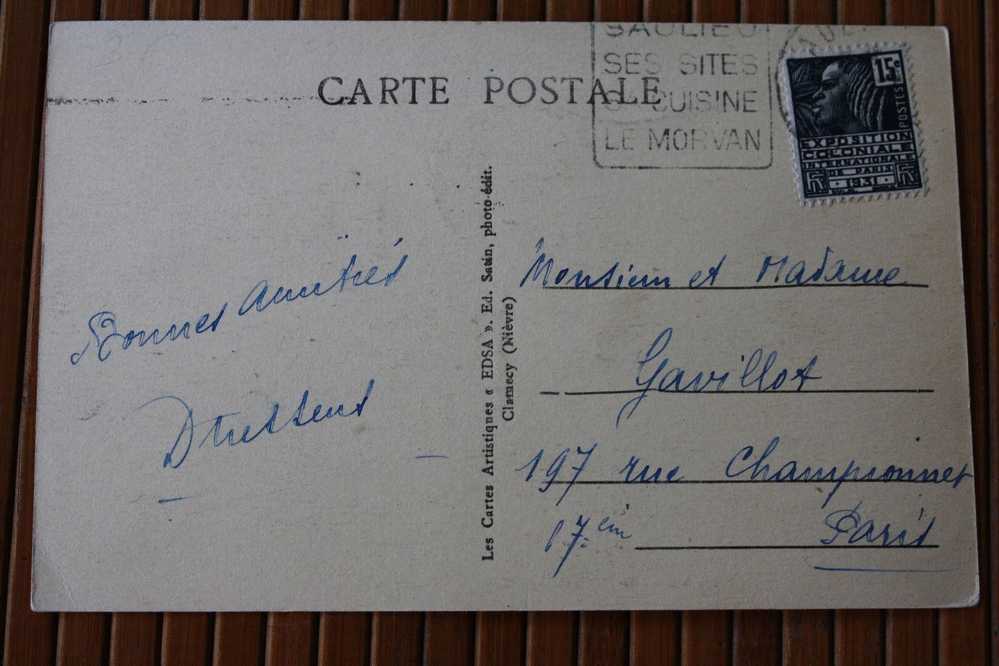 CARTE POSTALE
SAULIEU
SES SITES
SA CUISINE
LE MORVAN
15c
POSTES
EXPOSITION
COLONIALE
INTERNATIONALE
DE PARIS
RF 1931 RF
Bonnes Amitiés
Les Cartes Artistiques « EDSA ». Ed. Satin, photo-édit.
Clamecy (Nièvre)
Monsieur et Madame
Gavillot
197 rue Championnet
17.èm Paris